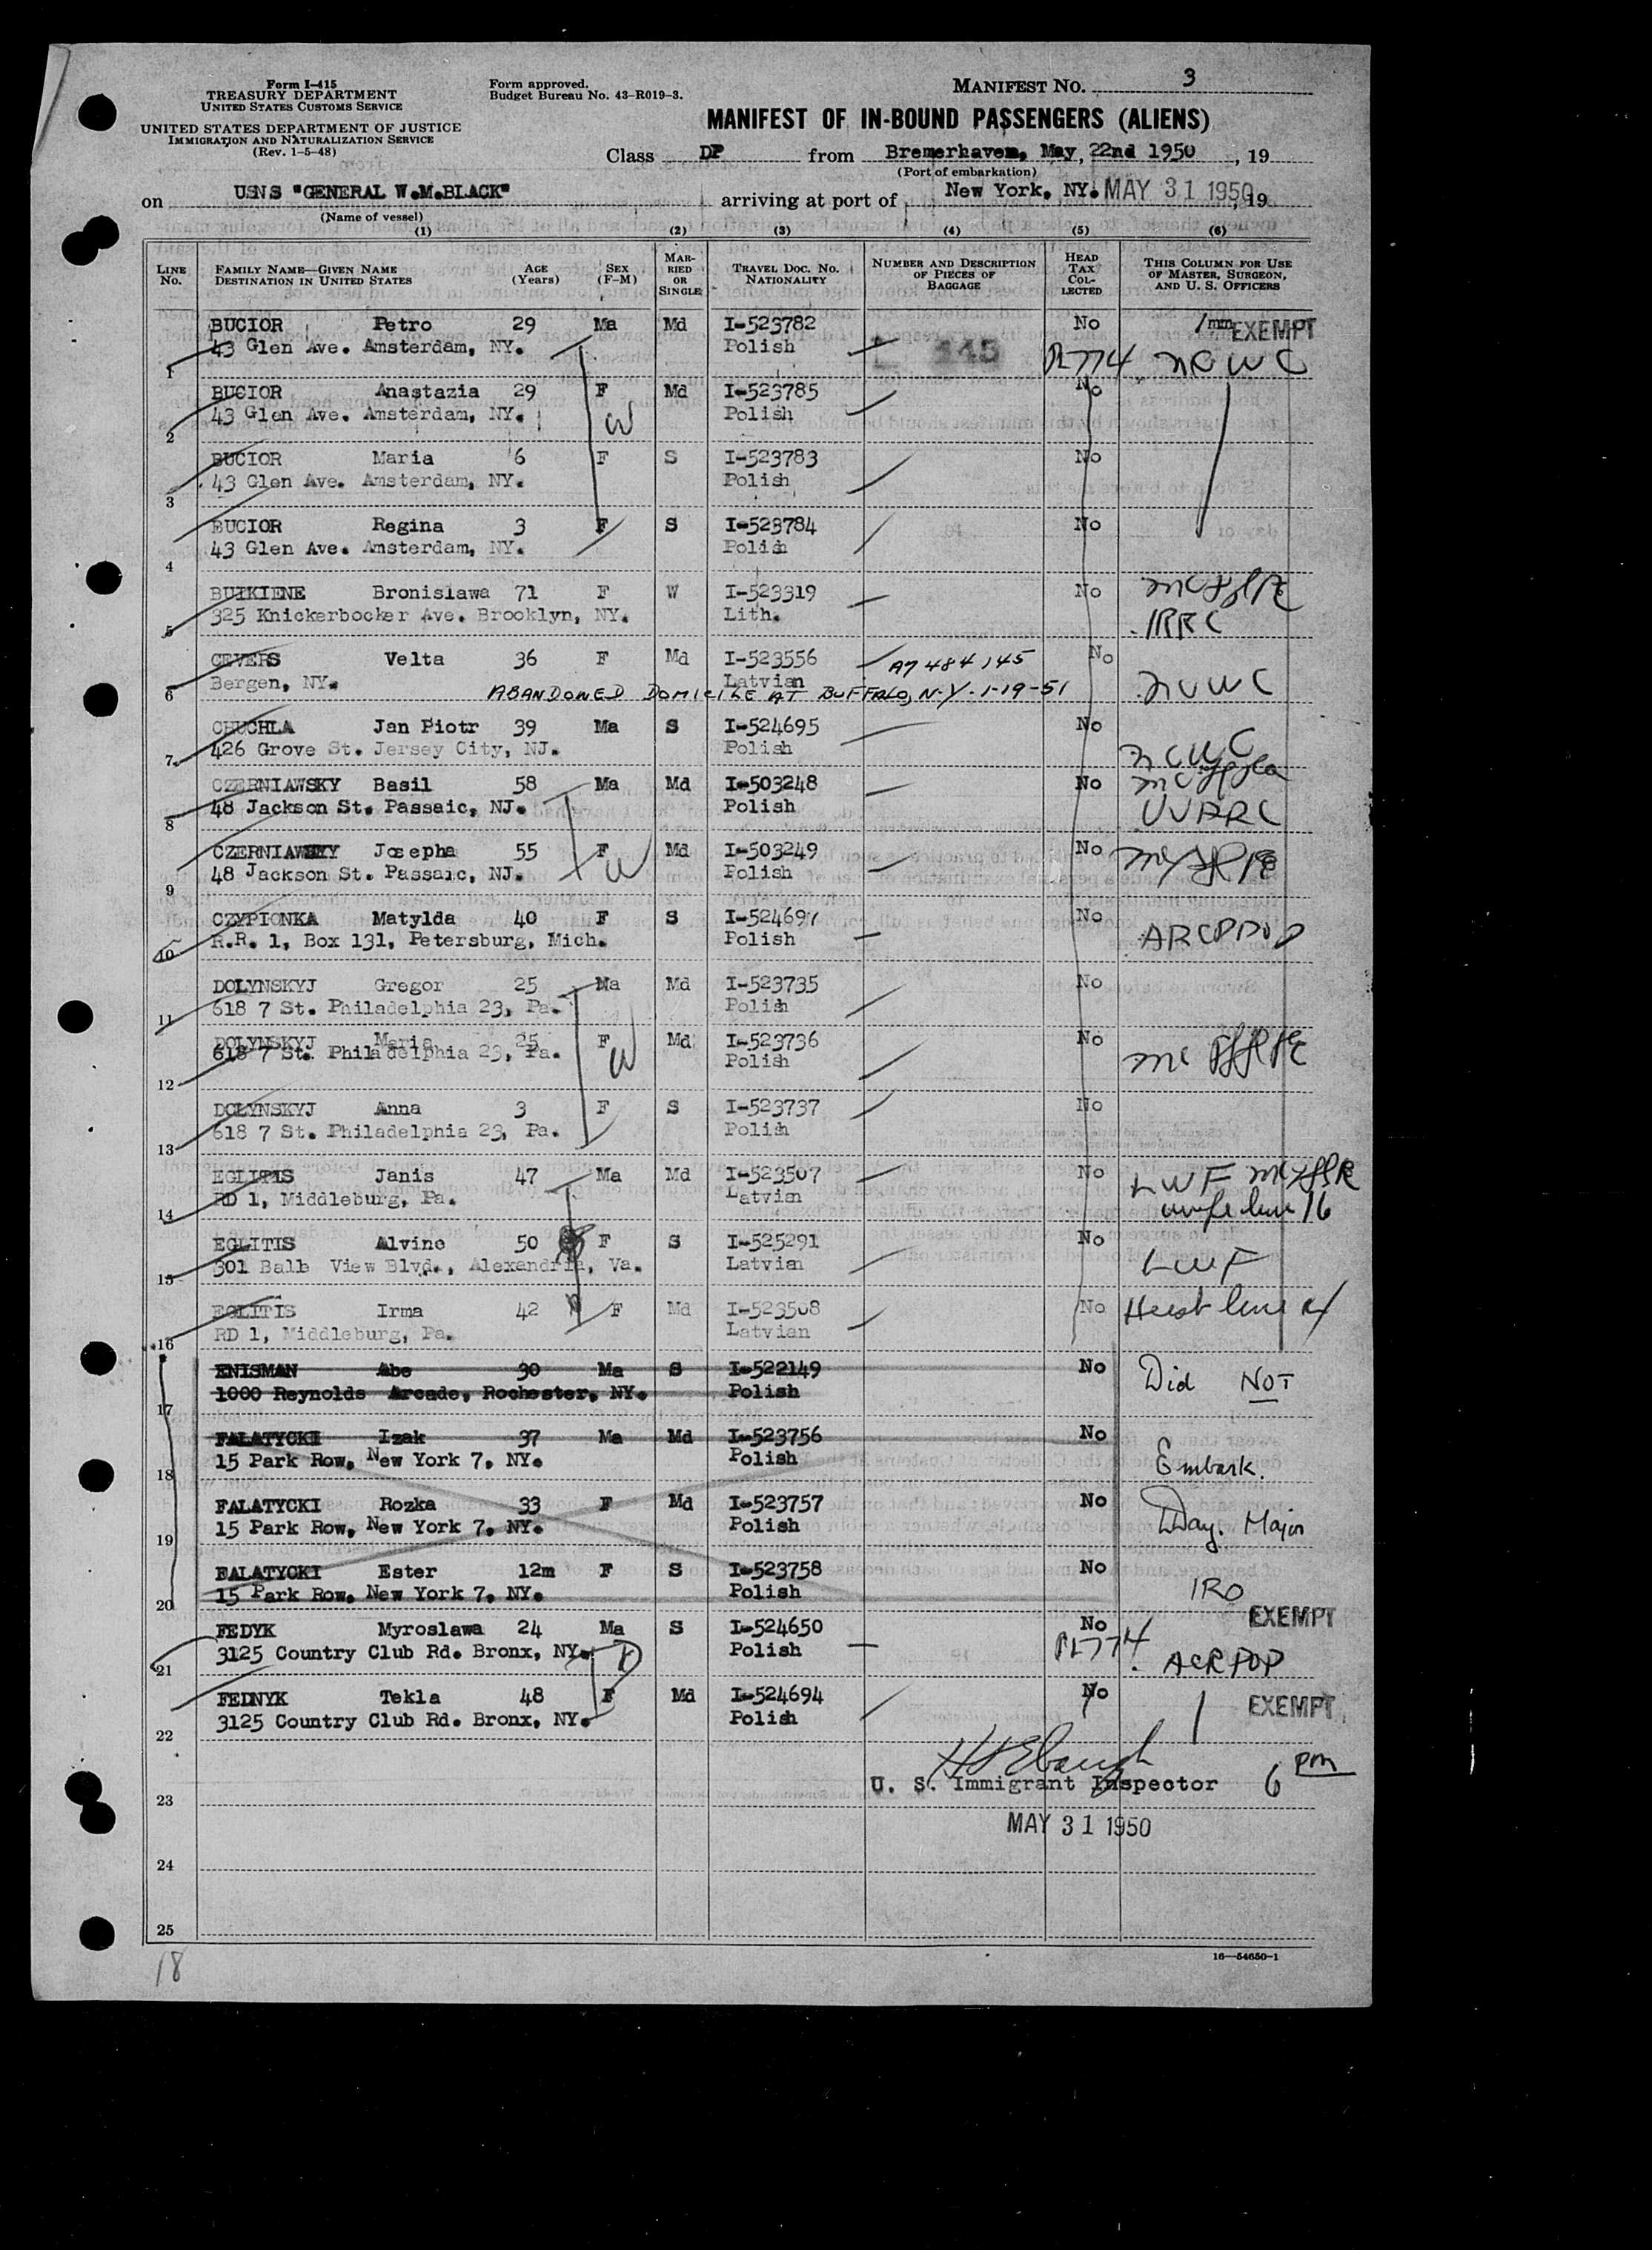 Form I-415
TREASURY DEPARTMENT
UNITED STATES CUSTOMS SERVICE
UNITED STATES DEPARTMENT OF JUSTICE
IMMIGRATION AND NATURALIZATION SERVICE
(Rev. 1-5-48)
Form approved.
Budget Bureau No. 43-R019-3.
MANIFEST NO. 3
MANIFEST OF IN-BOUND PASSENGERS (ALIENS)
Class DP from Bremerhaven, May, 22nd 1950, 19
(Port of embarkation)
on USNS "GENERAL W.M.BLACK" arriving at port of New York, NY. MAY 31 1950, 19
(Name of vessel)
(1) (2) (3) (4) (5) (6)
LINE NO. FAMILY NAME—GIVEN NAME DESTINATION IN UNITED STATES AGE (Years) SEX (F-M) MARRIED OR SINGLE TRAVEL DOC. NO. NATIONALITY NUMBER AND DESCRIPTION OF PIECES OF BAGGAGE HEAD TAX COLLECTED THIS COLUMN FOR USE OF MASTER, SURGEON, AND U. S. OFFICERS
BUCIOR Petro 29 Ma Md I-523782 No 1mm EXEMPT
1 43 Glen Ave. Amsterdam, NY. Polish 145 PL774 NCWC
BUCIOR Anastazia 29 F Md I-523785 No
2 43 Glen Ave. Amsterdam, NY. W Polish
BUCIOR Maria 6 F S I-523783 No
3 43 Glen Ave. Amsterdam, NY. Polish
BUCIOR Regina 3 F S I-523784 No
4 43 Glen Ave. Amsterdam, NY. Polish
Bronislawa 71 F W I-523319 No
5 325 Knickerbocker Ave. Brooklyn, NY. Lith.
CEVERS Velta 36 F Md I-523556 A7484145 No
Bergen, NY. Latvian
6 ABANDONED DOMICILE AT BUFFALO, N.Y. 1-19-51 NCWC
CHUCHLA Jan Piotr 39 Ma S I-524695 No
7 426 Grove St. Jersey City, NJ. Polish NCWC
CZERNIAWSKY Basil 58 Ma Md I-503248 No
8 48 Jackson St. Passaic, NJ. Polish UUARC
CZERNIAWSKY Josepha 55 F Md I-503249 No
9 48 Jackson St. Passaic, NJ. W Polish
CZYPIONKA Matylda 40 F S I-524697 No
10 R.R. 1, Box 131, Petersburg, Mich. Polish
DOLYNSKYJ Gregor 25 Ma Md I-523735 No
11 618 7 St. Philadelphia 23, Pa. Polish
DOLYNSKYJ Maria 25 F Md I-523736 No
12 618 7 St. Philadelphia 23, Pa. W Polish
DOLYNSKYJ Anna 3 F S I-523737 No
13 618 7 St. Philadelphia 23, Pa. Polish
EGLITIS Janis 47 Ma Md I-523507 No LWF
14 RD 1, Middleburg, Pa. Latvian wife line 16
EGLITIS Alvine 50 F S I-525291 No
15 301 Balb View Blvd., Alexandria, Va. Latvian LWF
EGLITIS Irma 42 F Md I-523508 No
16 RD 1, Middleburg, Pa. Latvian
ENISMAN Abe 30 Ma S I-522149 No Did NOT
17 1000 Reynolds Arcade, Rochester, NY. Polish
FALATYCKI Izak 37 Ma Md I-523756 No
18 15 Park Row, New York 7, NY. Polish Embark.
FALATYCKI Rozka 33 F Md I-523757 No
19 15 Park Row, New York 7, NY. Polish Major
FALATYCKI Ester 12m F S I-523758 No
20 15 Park Row, New York 7, NY. Polish IRO
EXEMPT
FEDYK Myroslawa 24 Ma S I-524650 No
21 3125 Country Club Rd. Bronx, NY. Polish PL774
FEDNYK Tekla 48 F Md I-524694 No EXEMPT
22 3125 Country Club Rd. Bronx, NY. Polish
U. S. Immigrant Inspector 6 pm
23
MAY 31 1950
24
25
16—54650-1
18